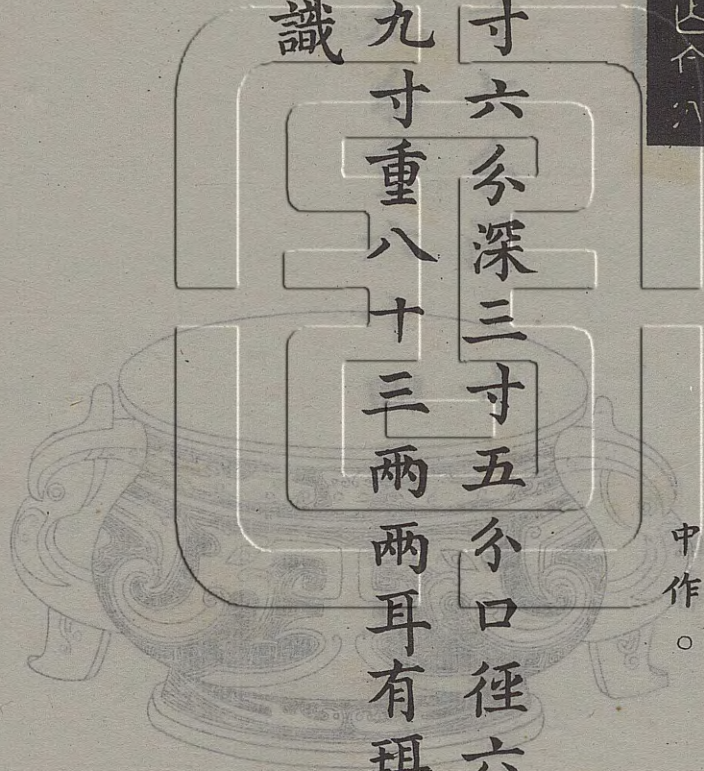 中作。
寸六分深三寸五分口徑六
九寸重八十三兩兩耳有珥
識